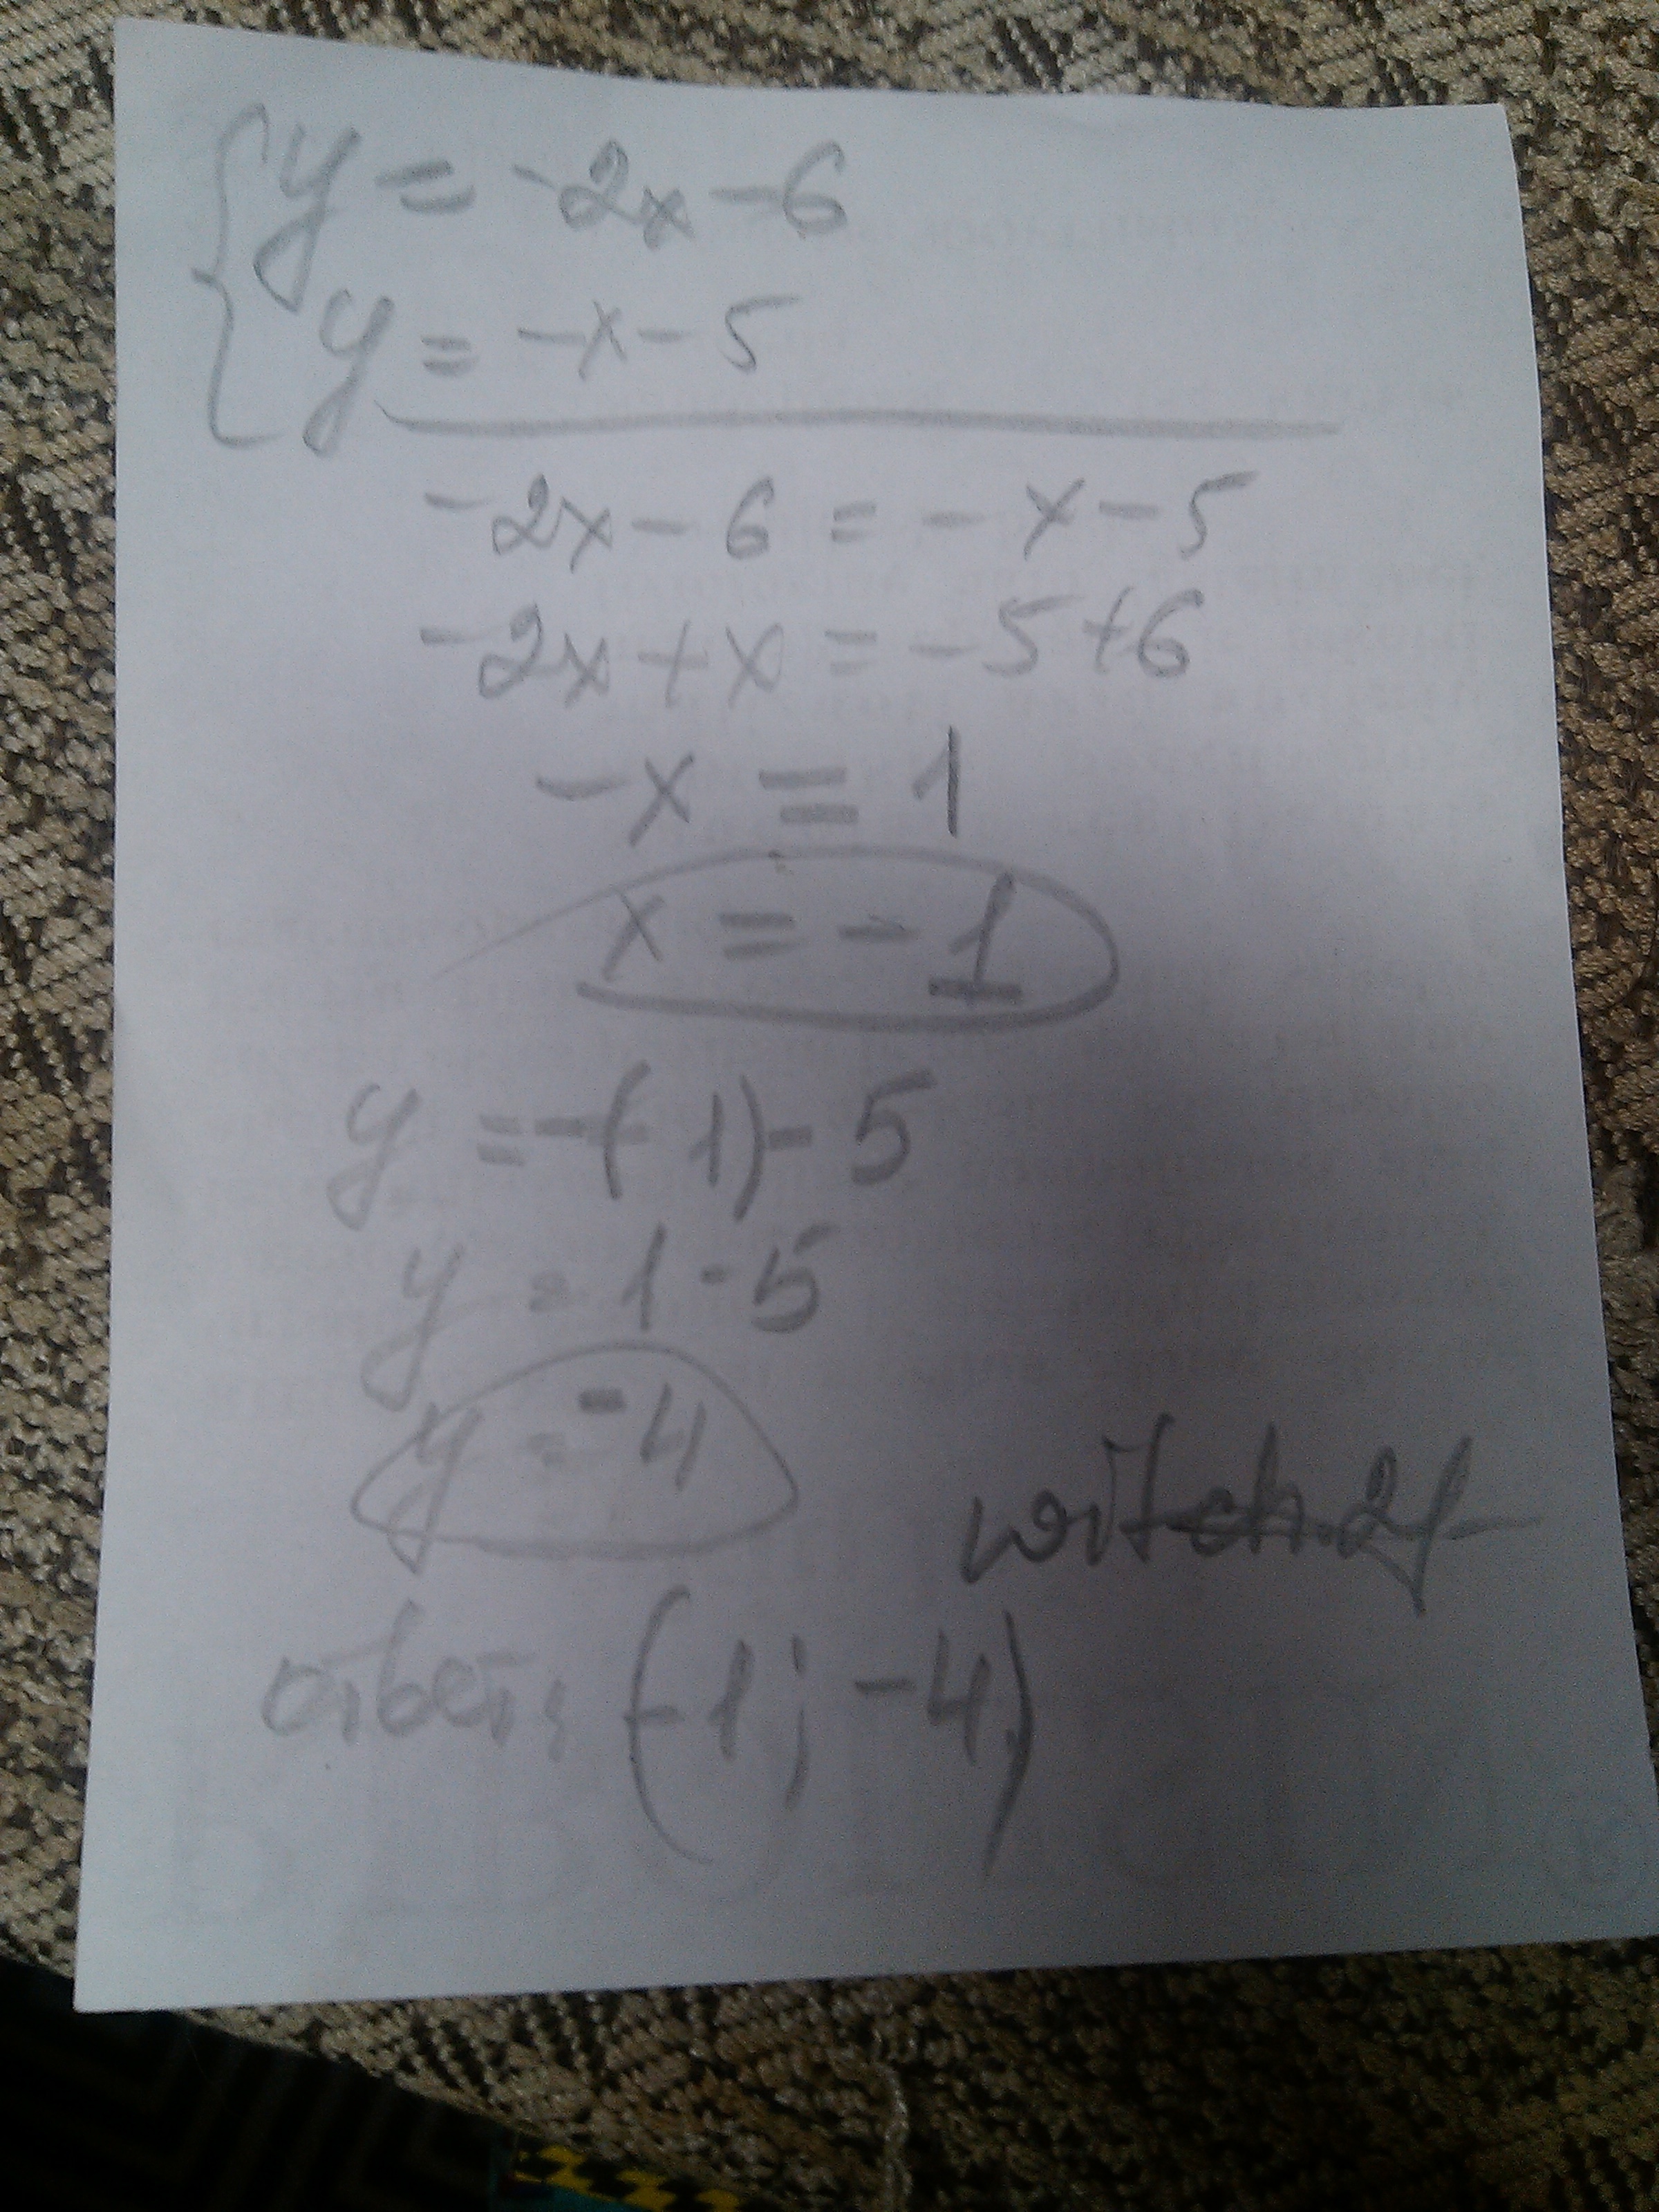 { y = -2x - 6
y = -x - 5
-2x - 6 = -x - 5
-2x + x = -5 + 6
-x = 1
x = -1
y = -(-1) - 5
y = 1 - 5
y = -4
witch.21
ответ: (-1; -4)